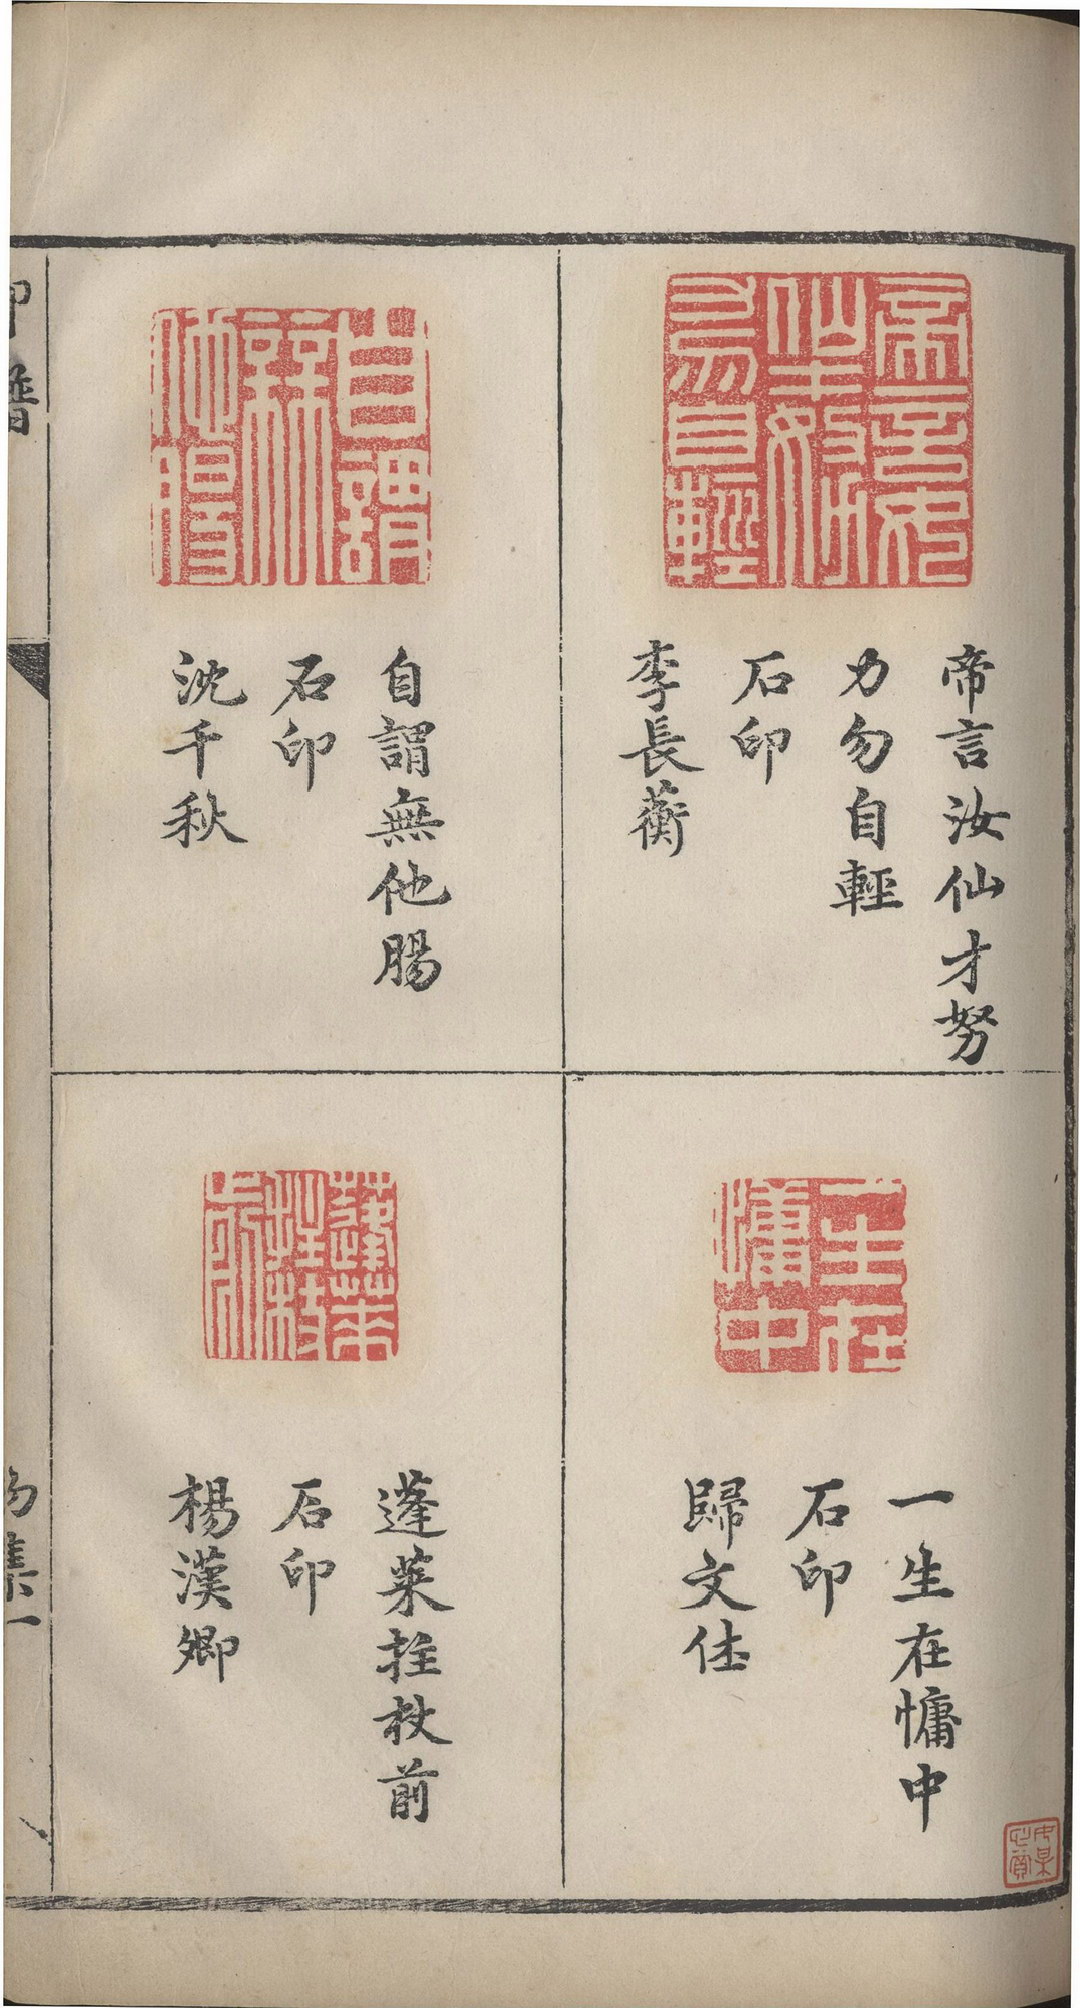 帝言汝仙才努
力勿自輕
石印
李長蘅
一生在慵中
石印
歸文休
自謂無他腸
石印
沈千秋
蓬萊拄杖前
石印
楊漢卿
印譜
集一